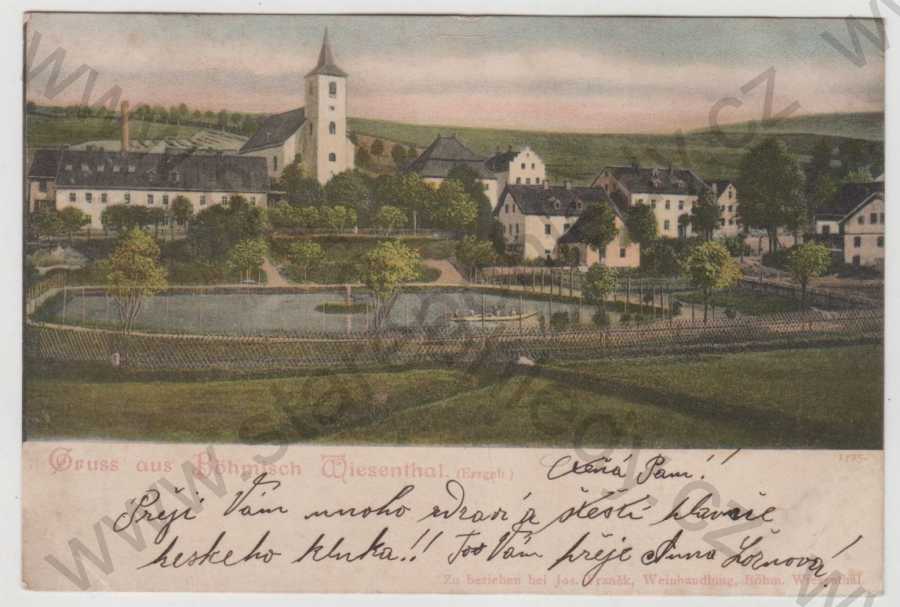 Gruss aus Böhmisch Wiesenthal. (Erzgeb.)
Ctěná Paní!
1725
Přeji Vám mnoho zdraví a štěstí hlavně
heskeho kluka!! Too Vám přeje Anna Ložnová!
Zu beziehen bei Jos. Franěk, Weinhandlung, Böhm. Wiesenthal.
www.starepohlednice.cz